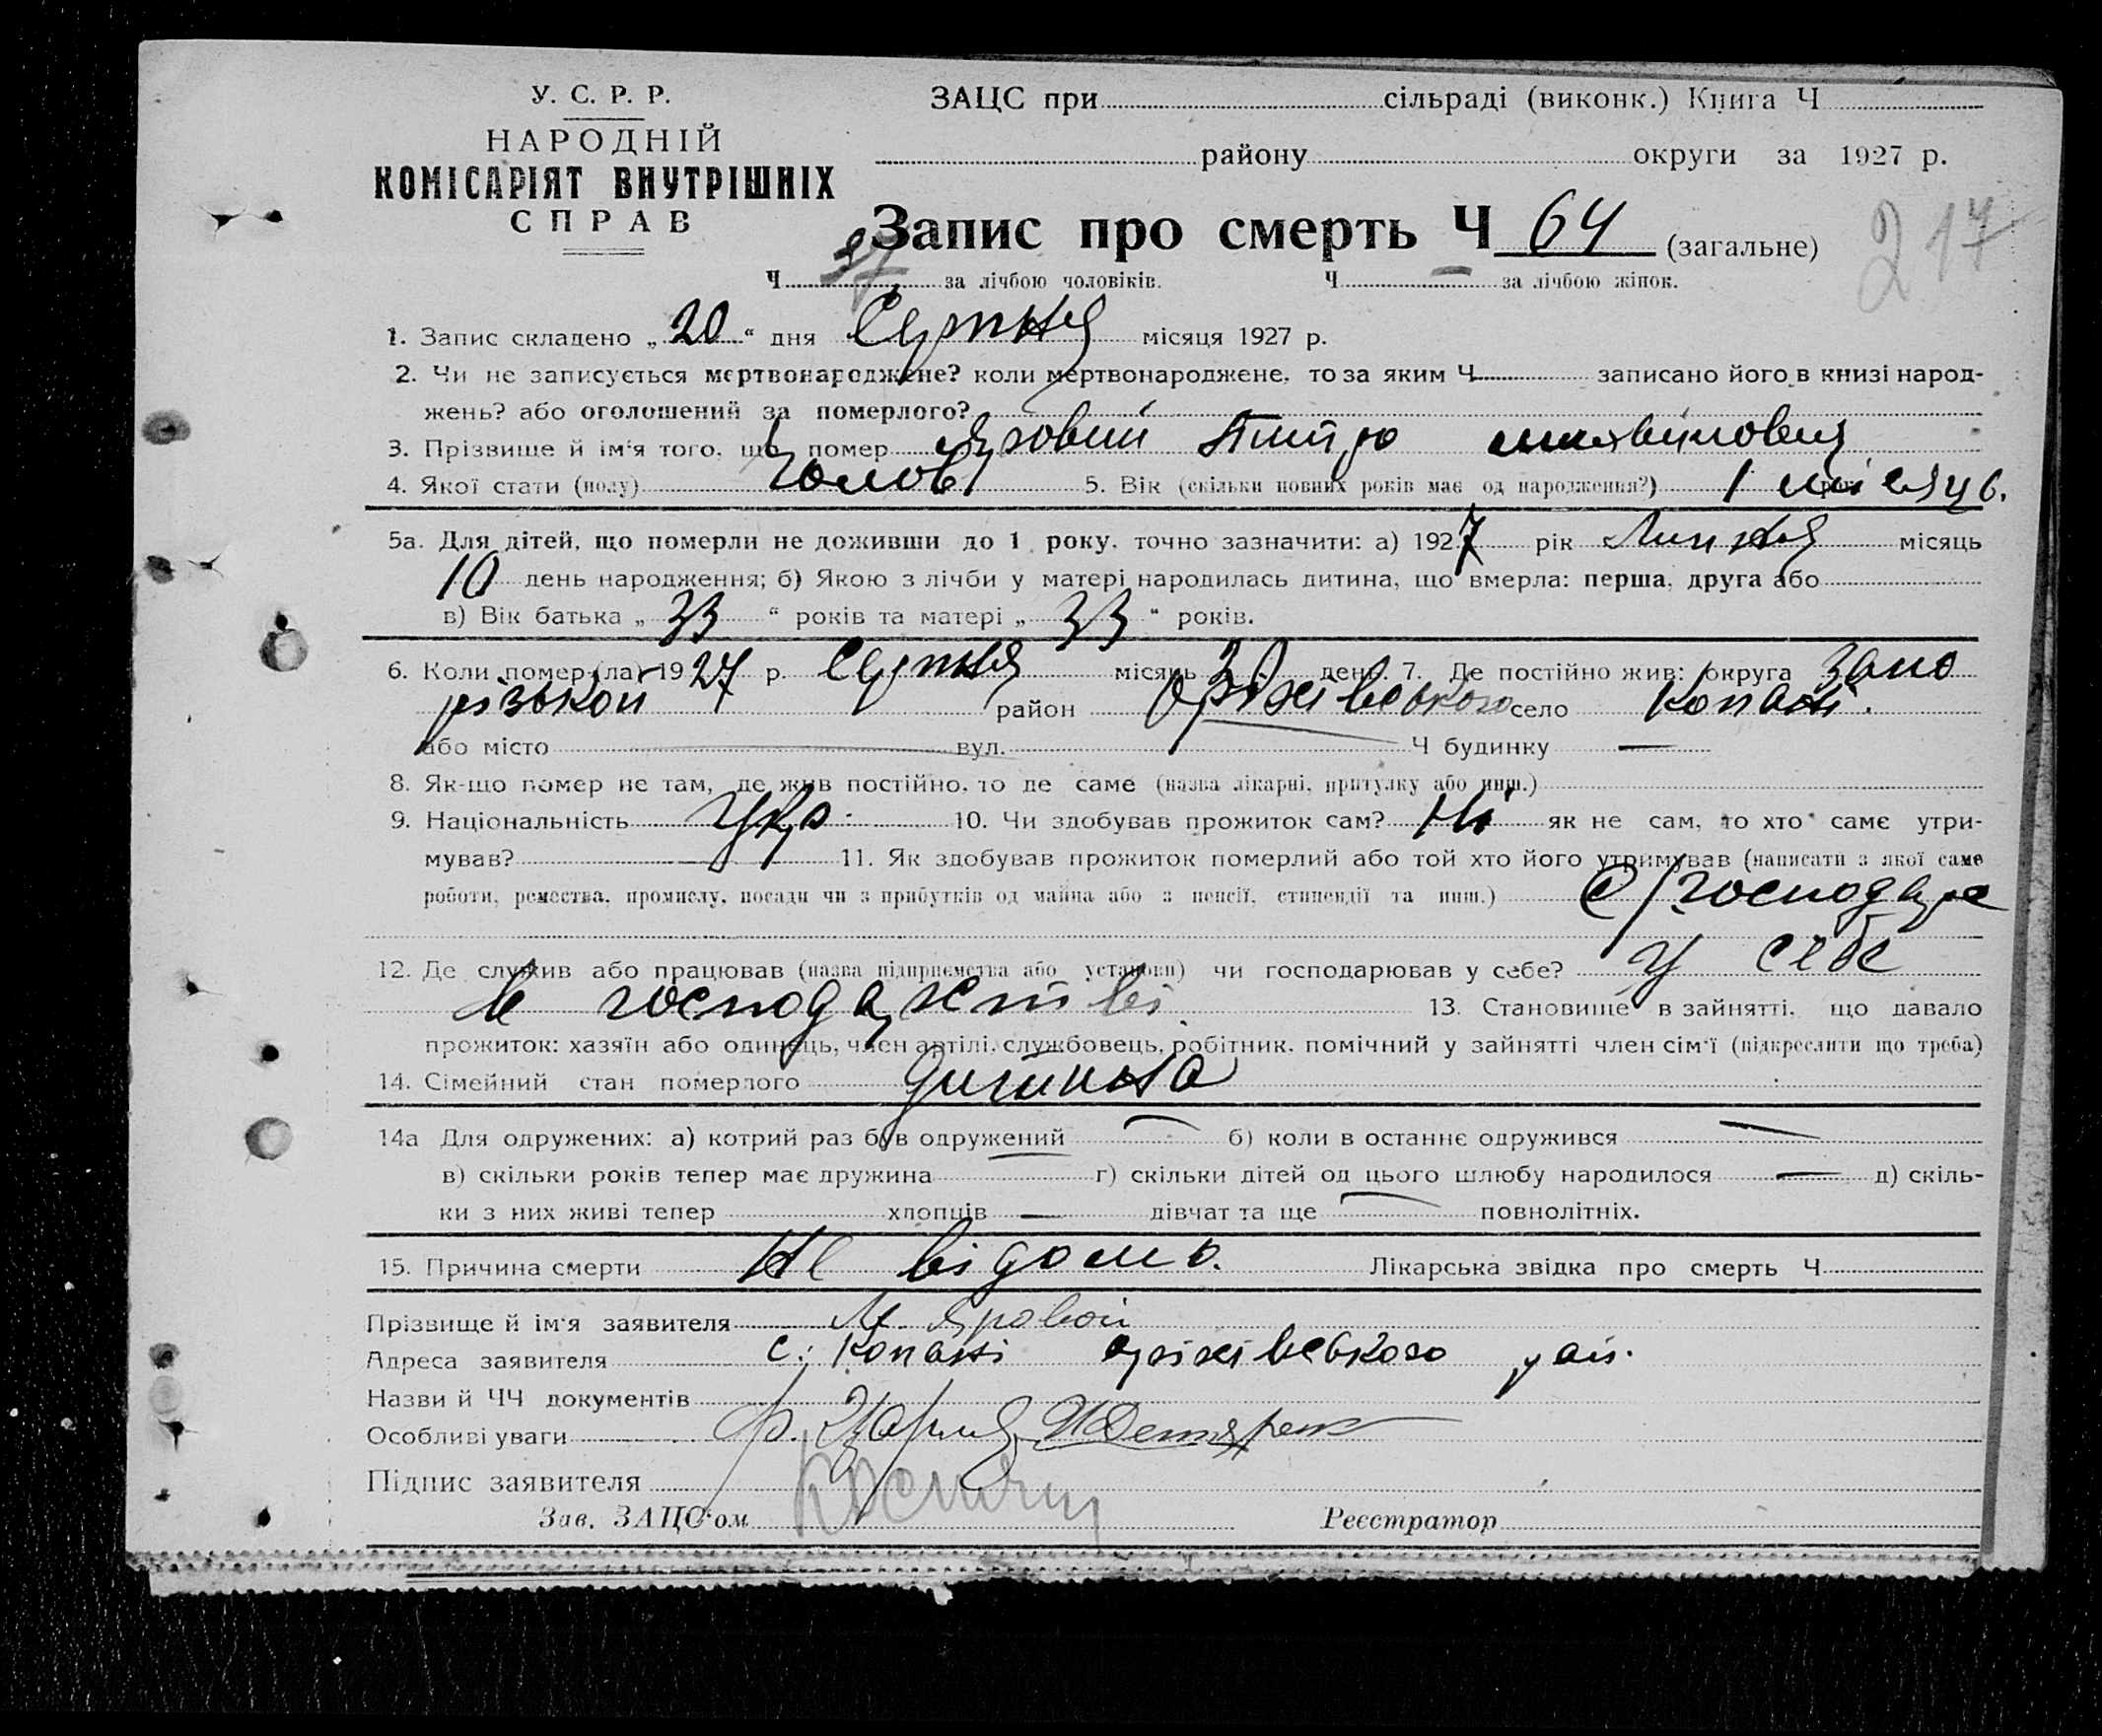 У. С. Р. Р.
НАРОДНІЙ
КОМІСАРІЯТ ВНУТРІШНІХ
СПРАВ
ЗАЦС при сільраді (виконк.) Книга Ч
району округи за 1927 р.
Запис про смерть Ч 64 (загальне)
217
Ч 37 за лічбою чоловіків. Ч — за лічбою жінок.
1. Запис складено „20“ дня Серпня місяця 1927 р.
2. Чи не записується мертвонароджене? коли мертвонароджене, то за яким Ч записано його в книзі народ-
жень? або оголошений за померлого?
3. Прізвище й ім'я того, що помер Яровий
4. Якої стати (полу) Чолов 5. Вік (скільки повних років має од народження?) 1 місяць.
5а. Для дітей, що померли не доживши до 1 року, точно зазначити: а) 1927 рік Липня місяць
10 день народження; б) Якою з лічби у матері народилась дитина, що вмерла: перша, друга або
в) Вік батька „33“ років та матері „33“ років.
6. Коли помер (ла) 1927 р. Серпня місяць 20 день. 7. Де постійно жив: округа Запо
різькой район Оріхівського село Копані.
або місто — вул. — Ч будинку —
8. Як-що помер не там, де жив постійно, то де саме (назва лікарні, притулку або инш.)
9. Національність Укр. 10. Чи здобував прожиток сам? Ні як не сам, то хто саме утри-
мував? — 11. Як здобував прожиток померлий або той хто його утримував (написати з якої саме
роботи, ремества, промислу, посади чи з прибутків од майна або з пенсії, стипендії та инш.) С/господар
12. Де служив або працював (назва підприємства або установи) чи господарював у себе? У себе
в господарстві. 13. Становище в зайнятті, що давало
прожиток: хазяїн або одинець, член артілі, службовець, робітник, помічний у зайнятті член сім'ї (підкреслити що треба)
14. Сімейний стан померлого дитина
14а Для одружених: а) котрий раз був одружений — б) коли в останнє одружився —
в) скільки років тепер має дружина г) скільки дітей од цього шлюбу народилося — д) скіль-
ки з них живі тепер хлопців — дівчат та ще — повнолітніх.
15. Причина смерти Не відомо. Лікарська звідка про смерть Ч
Прізвище й ім'я заявителя М. Яровой
Адреса заявителя с. Копані Оріхівського рай.
Назви й ЧЧ документів
Особливі уваги
Підпис заявителя
Зав. ЗАЦС'ом Реєстратор